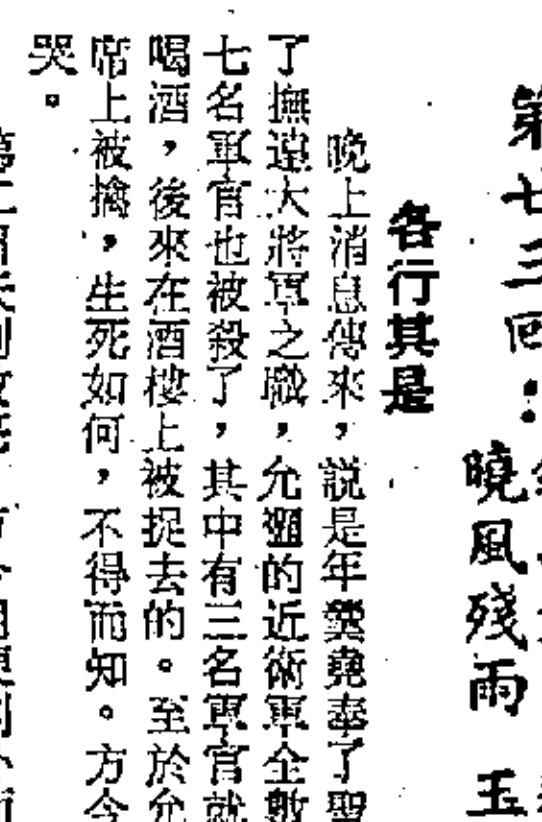 第廿三回：
曉風殘雨 玉
各行其是
晚上消息傳來，説是年羹堯奉了聖
了撫遠大將軍之職，允禵的近衛軍全數
七名軍官也被殺了，其中有三名軍官就
喝酒，後來在酒樓上被捉去的。至於允
席上被擒，生死如何，不得而知。方今
哭。